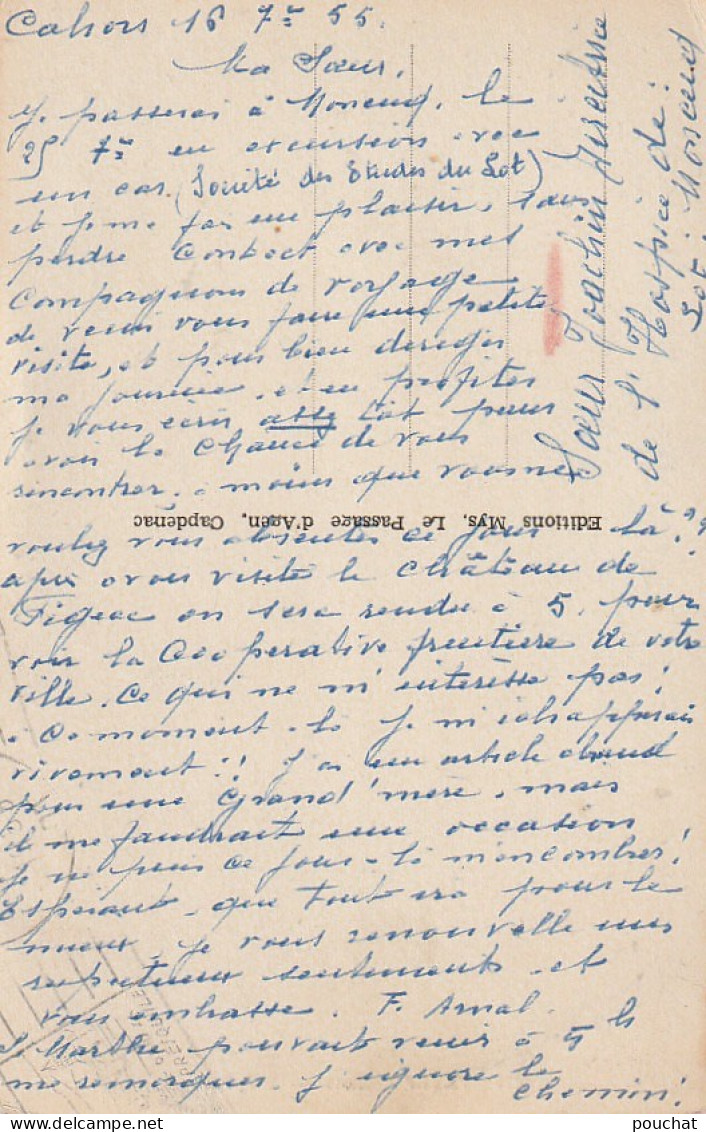 Cahors 16 7re 55.
Ma Sœur,
Je passerai à Moncuq, le
25 7re en excursion avec
un car (Société des Etudes du Lot)
et me fais un plaisir, sans
perdre contact avec mes
compagnons de voyage
de venir vous faire une petite
visite, et pour bien
ma journée, et en profiter
je vous écris assez tôt pour
avoir la chance de vous
rencontrer, à moins que vous ne
vouliez vous absenter ce jour là ??
après avoir visité le château de
Figeac on sera rendu à 5. pour
voir la Cooperative fruitière de votre
ville. Ce qui ne m'intérèsse pas!
à ce moment-là je m'échapperais
vivement!! J'ai un article chaud
pour une Grand'mère, mais
il me faudrait une occasion
je ne puis ce jour-là m'encombrer!
Espérant, que tout ira pour le
mieux, je vous renouvelle mes
respectueux sentiments et
vous embrasse. F. Arnal.
S. Marthe pouvait venir à 5h
me remorquer. J'ignore le
chemin!
Sœur Joachim Directrice
de l'Hospice de:
Lot: Moncuq
Editions Mys, Le Passage d'Agen, Capdenac
www.pouchat